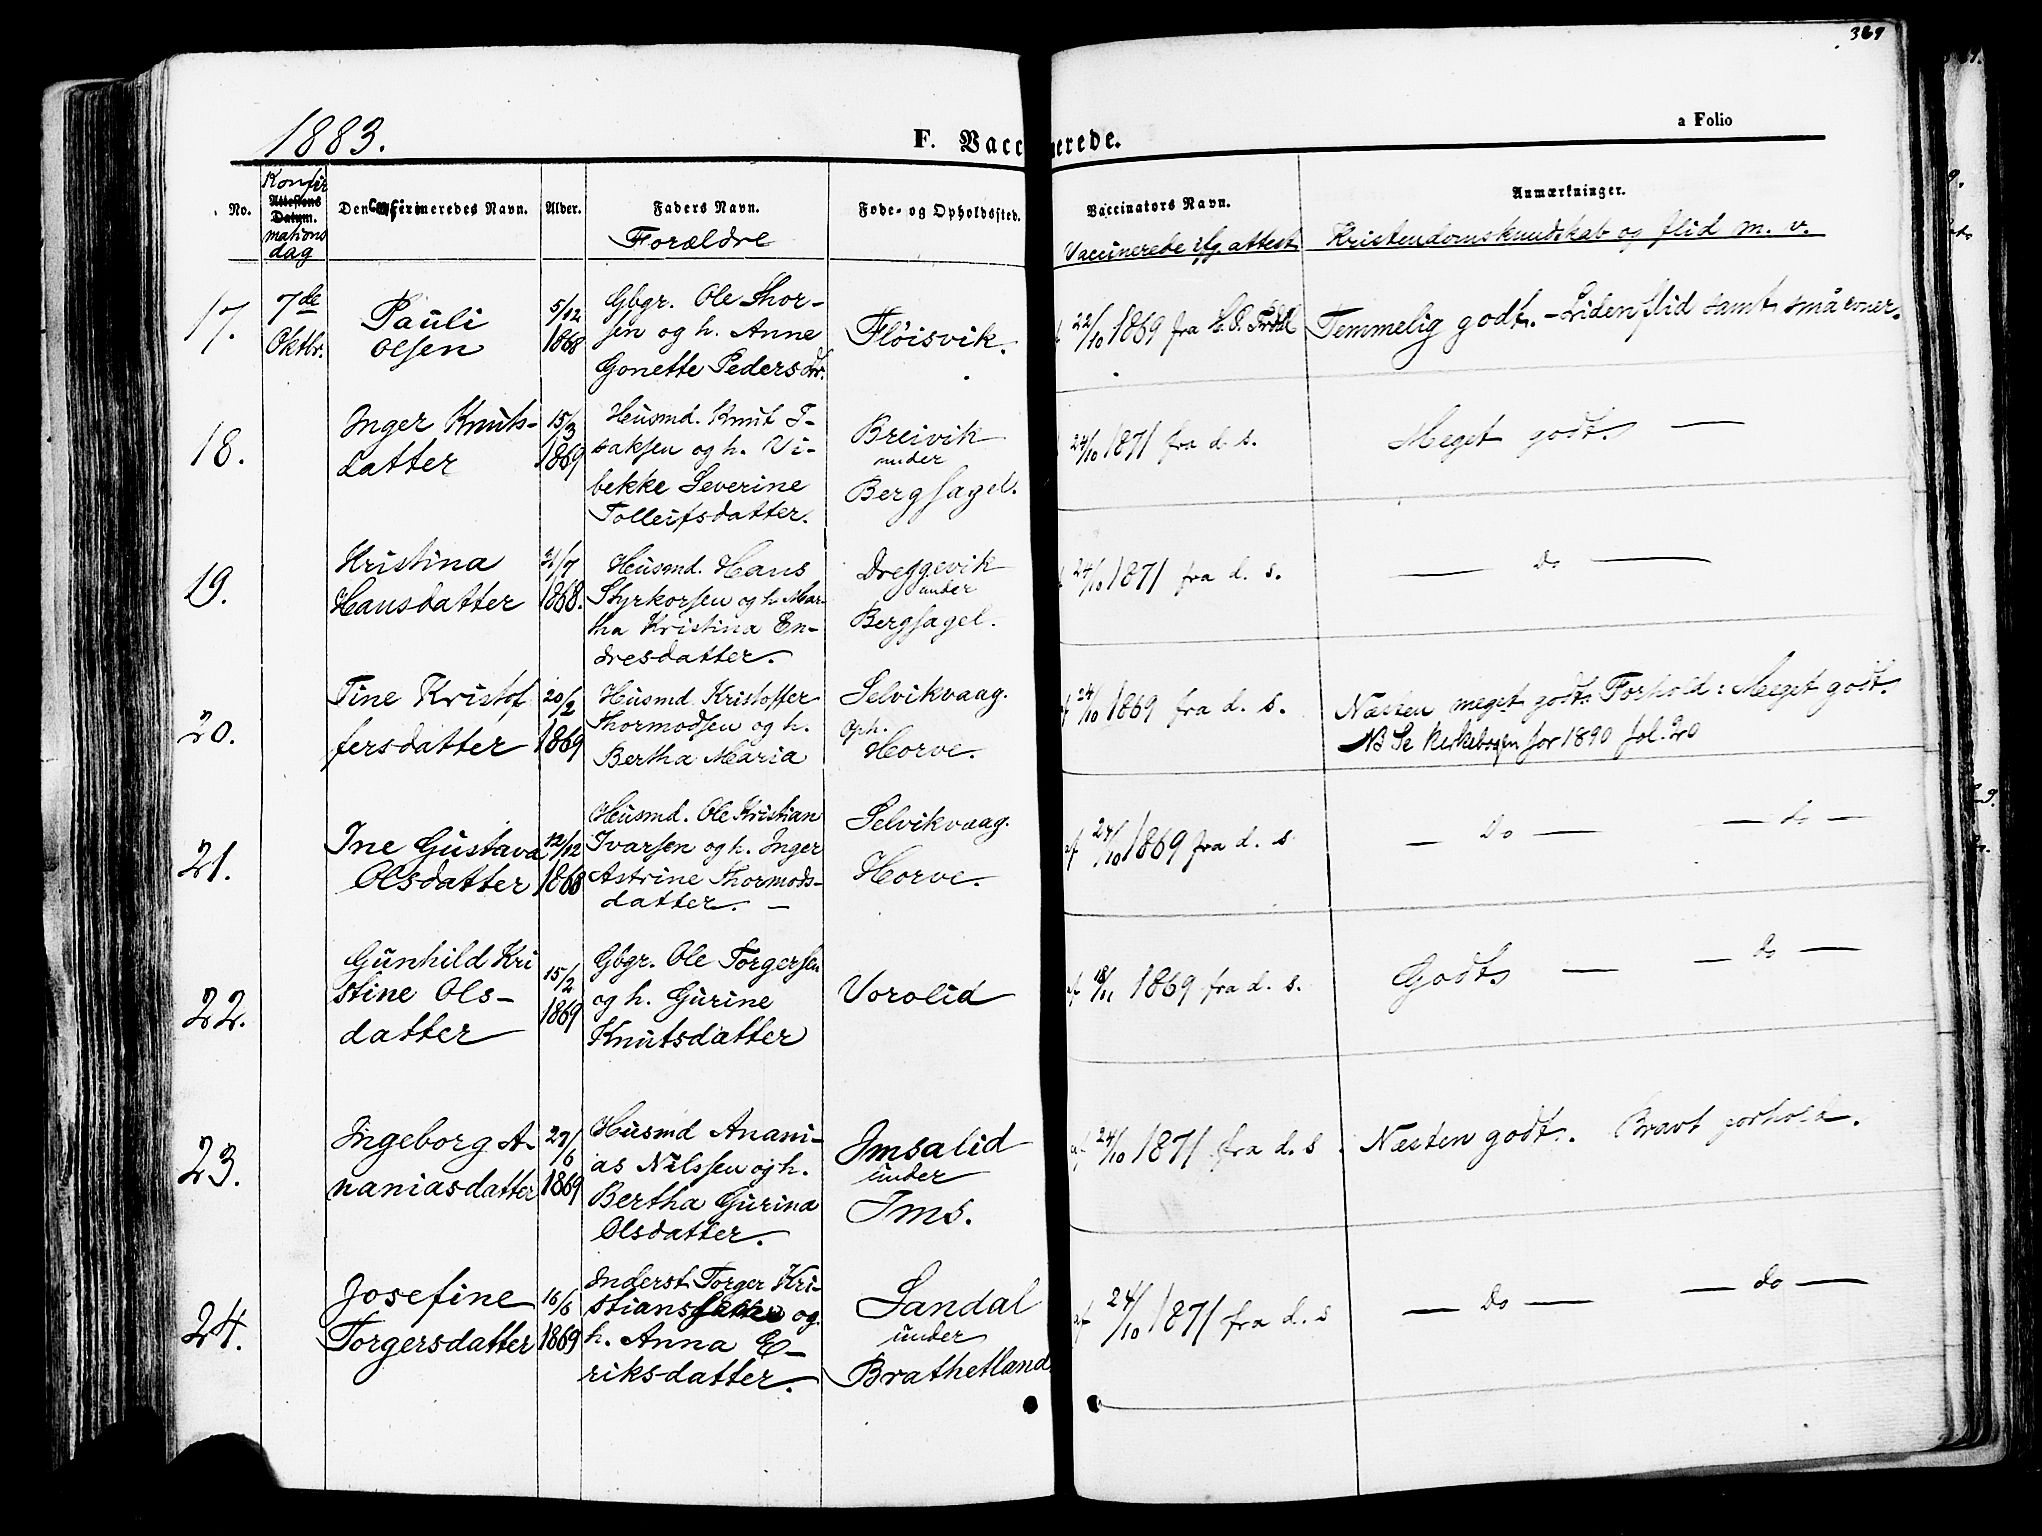 369
1883.
F. Vaccinerede.
a Folio
No.
Konfir
Attestens
Datum.
mations
dag
Den Confirmeredes Navn.
Alder.
Faders Navn.
Forældre
Føde- og Opholdssted.
Vaccinators Navn.
Vaccinerede ifg. attest
Anmærkninger.
Kristendomskundskab og flid m. v.
17.
7de
Oktbr.
Pauli
Olsen
5/12
1868
Gbgr. Ole Thor-
sen og h. Anne
Gonette Pedersdtr.
Fløisvik.
22/10 1869 fra
Temmelig godt. - Liden flid samt små evner.
18.
Inger Knuts-
datter
15/3
1869
Husmd. Knut I-
saksen og h. Vi-
bekke Severine
Tolleifsdatter.
Breivik
under
Bergsagel.
24/10 1871 fra d. s.
Meget godt. —
19.
Kristina
Hansdatter
21/7
1868.
Husmd. Hans
Styrkorsen og h. Mar-
tha Kristina En-
dresdatter.
Dreggevik
under
Bergsagel.
24/10 1871 fra d. s.
— Do —
20.
Tine Kristof
fersdatter
20/2
1869
Husmd. Kristoffer
Thormodsen og h.
Bertha Maria
Selvikvaag.
Oph.
Horve.
af 24/10 1869 fra d. s.
Næsten meget godt. Forhold: Meget godt.
NB Se Kirkebogen for 1890 fol. 20
21.
Ine Gustava
Olsdatter
12/12
1868
Husmd. Ole Kristian
Ivarsen og h. Inger
Astrine Thormods-
datter. —
Selvikvaag.
Horve.
af 24/10 1869 fra d. s
— Do — — do —
22.
Gunhild Kri
stine Ols-
datter
15/2
1869
Gbgr. Ole Torgersen
og h. Gurine
Knutsdatter
Vorolid
af 18/11 1869 fra d. s.
Godt. — — Do —
23.
Ingeborg A-
naniasdatter
27/6
1869
Husmd Anani-
as Nilssen og h.
Bertha Gurina
Olsdatter.
Imsalid
under
Ims.
af 24/10 1871 fra d. s.
Næsten godt. Bravt forhold.
24.
Josefine
Torgersdatter
16/6
1869
Inderst Torger Kri-
stians og
h. Anna E-
riksdatter.
Sandal
under
Brathetland
af 24/10 1871 fra d. s
— Do — — do —